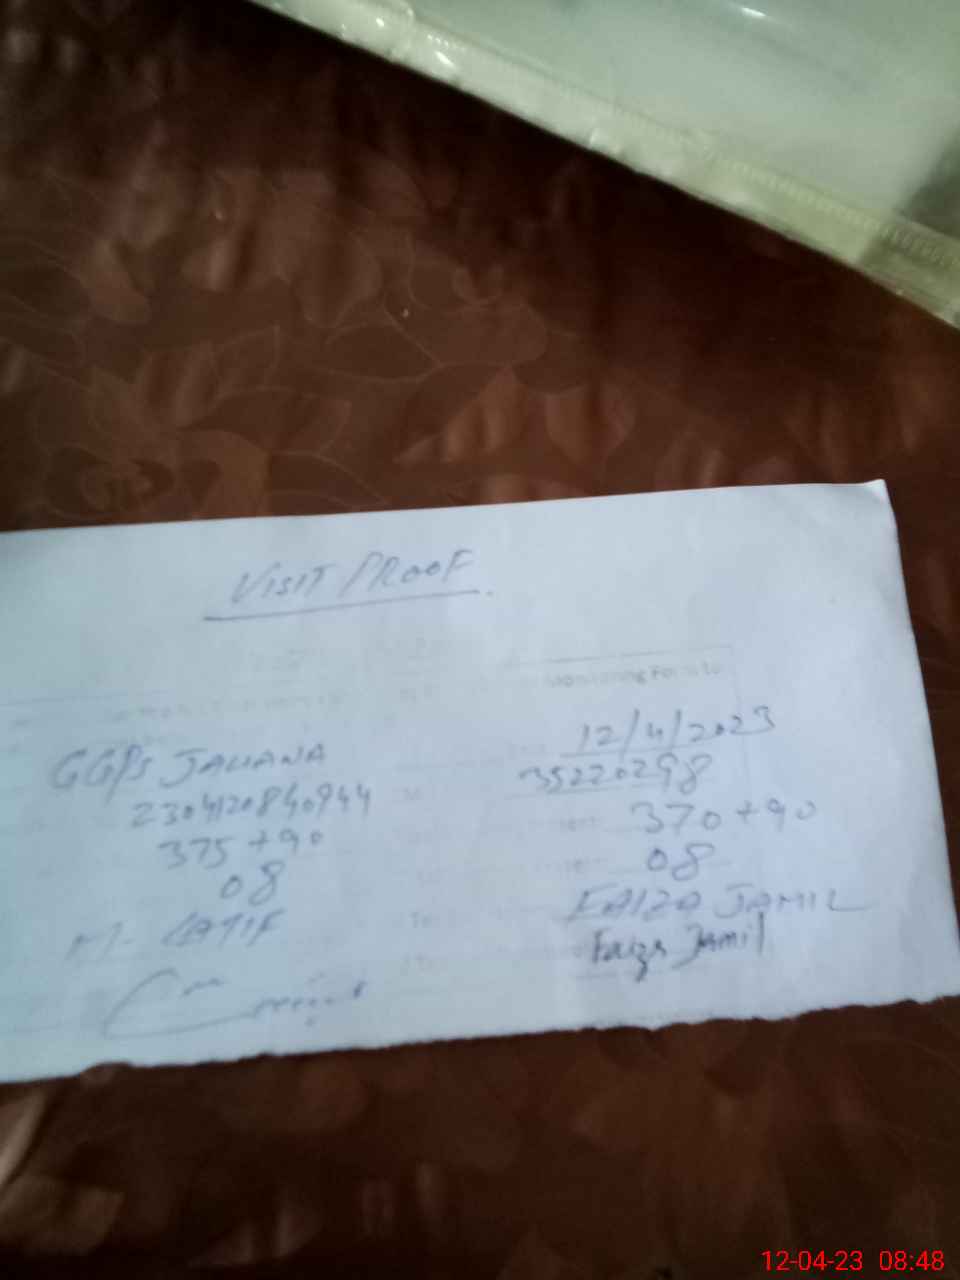 VISIT PROOF
Monitoring Form
GGPS JALLANA
12/4/2023
2304120840944
35220298
375 + 90
370 + 90
08
08
M. LATIF
FAIZA JAMIL
Faiza Jamil
12-04-23 08:48